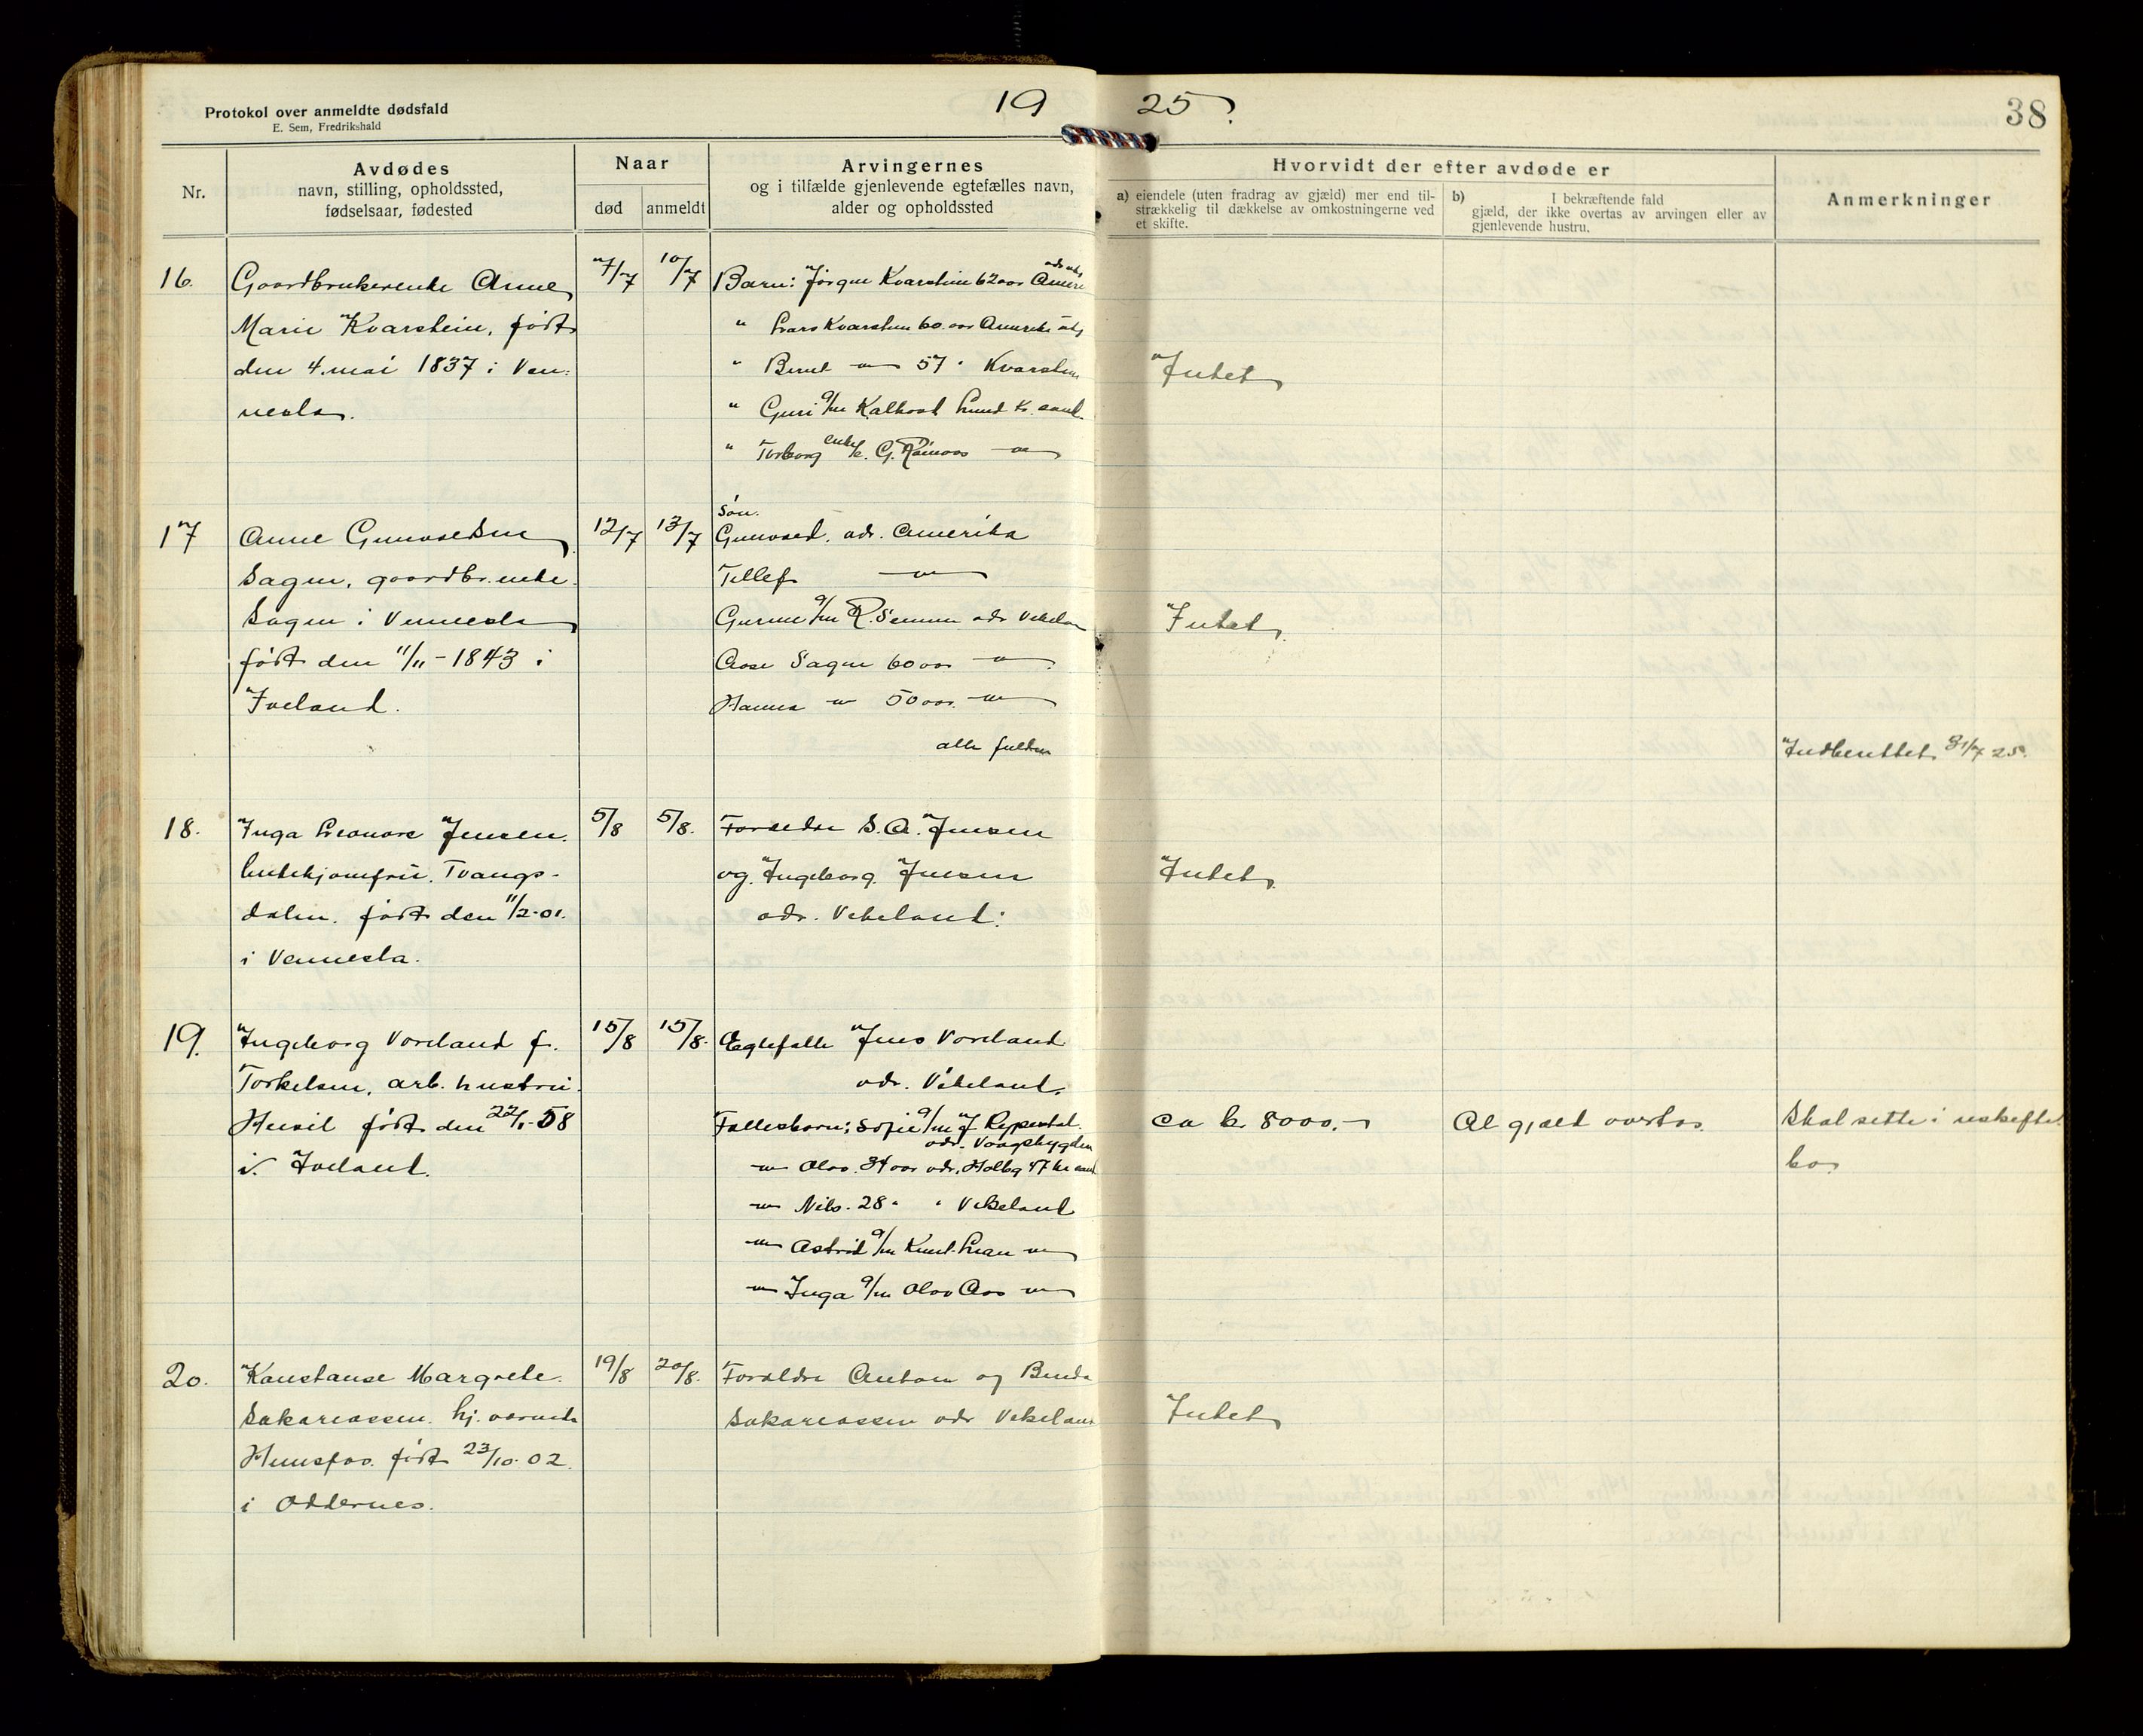 Protokol over anmeldte dødsfald
E. Sem, Fredrikshald
19 25
38
Nr.
Avdødes
navn, stilling, opholdssted,
fødselsaar, fødested
Naar
død
anmeldt
Arvingernes
og i tilfælde gjenlevende egtefælles navn,
alder og opholdssted
Hvorvidt der efter avdøde er
a) eiendele (uten fradrag av gjæld) mer end til-
strækkelig til dækkelse av omkostningerne ved
et skifte.
b) I bekræftende fald
gjæld, der ikke overtas av arvingen eller av
gjenlevende hustru.
Anmerkninger
16.
Gaardbrukerenke Anne
Marie Kvarstein, født
den 4. mai 1837 i Ven:
nesla.
7/7
10/7
Barn: Jørgen Kvarstein 62 aar
" Lars Kvarstein 60. aar Amerika
" Berul — 57 " Kvarstein
" Guri g/m Kalhoot Lund Kr.sand.
" Torborg enke e. G. —
Intet
17
Anne Gunvaldsen
Sagen, gaardbr.enke.
Sagen i Vennesla
født den 11/11-1843 i
Iveland.
12/7
13/7
Søn.
Gunvald. adr. Amerika
Tellef —
Gurine g/m R. Senum adr Vikeland
Aase Sagen 60 aar —
Hanna — 50 aar. —
alle
Intet.
Indberettet 31/7 25.
18.
Inga Leonore Jensen.
butikjomfru. Tvangs-
dalen. født den 11/2-01.
i Vennesla.
5/8
5/8.
Foreldre S. A. Jensen
og Ingeborg Jensen
adr. Vikeland.
Intet.
19.
Ingeborg Voreland f.
Torkelsen, arb. hustru.
Heisel født den 22/1-58
i Iveland.
15/8
15/8.
Ægtefælle Jens Voreland
adr. Vikeland.
Fællesbarn: Sofie g/m J. Rypestøl.
adr. Vaagsbygden
— Olav. 34 aar adr. Holbg 47 kr.sand
— Nils. 28 " " Vikeland
— Astrid g/m Knut. Lian —
— Inga g/m Olav Aas —
ca kr 8000.-
Al gjæld overtas.
Skal sitte i uskiftet
bo.
20.
Konstanse Margrete.
Sakariassen. hj. værende
Hunsfos. født 23/10.02.
i Oddernes.
19/8
20/8.
Forældre Anton og
Sakariassen adr Vikeland
Intet